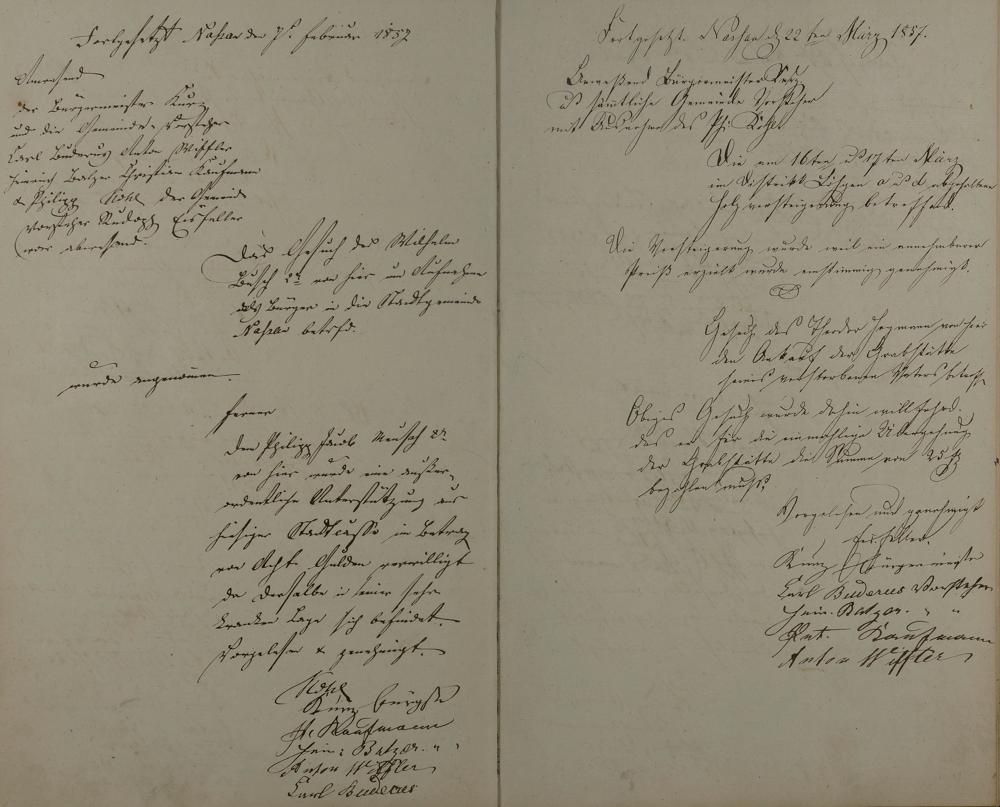 Fortgesetzt Naßau den 7t. Februar 1857
Anwesend
der Bürgermeister Kunz
und die Gemeinde-Vorsteher
Carl Buderus Anton Wiffler
Heinrich Balzer Christian Kaufmann
& Philipp Kohl der Gemeinde
Vorsteher Rudolph Eisfeller
war abwesend.
Das Gesuch des Wilhelm
Busch 2r von hier um Aufnahme
als Bürger in die Stadtgemeinde
Naßau betrfd.
wurde angenommen.
ferner
Dem Philipp Jacob Meusch 2r
von hier wurde eine außer-
ordentliche Unterstützung aus
hiesiger Stadtcasse im Betrag
von Acht Gulden verwilligt
da derselbe in seiner sehr
kranken Lage sich befindet.
Vorgelesen & genehmigt.
Kohl
Kunz Bürgstr
Kaufmann
Hein: Balzer. " "
Anton Wiffler
Carl Buderus
Fortgesetzt. Naßau d 22ten März 1857.
Anweßend Bürgermeister Kunz
u. sämtliche Gemeinde Vorsteher
mit Ausnahme des Ph. Kohl
Die am 16ten u. 17ten März
im Distrikt a u. d abgehaltene
Holzversteigerung betreffend.
Die Versteigerung wurde weil ein annehmbarer
Preiß erzielt wurde einstimmig genehmigt.
Gesuch des Theodor von hier
den Ankauf der Grabstätte
seines verstorbenen Vaters betreff
Obiges Gesuch wurde dahin willfahrd.
das er für die einmahlige Übergehung
der Grabstätte die Summe von 25 f
bezahlen muß.
Vorgelesen und genehmigt
Eisfeller.
Kunz Bürgermeister
Carl Buderus Vorsteher
Hein. Balzer. " "
Kaufmann
Anton Wiffler